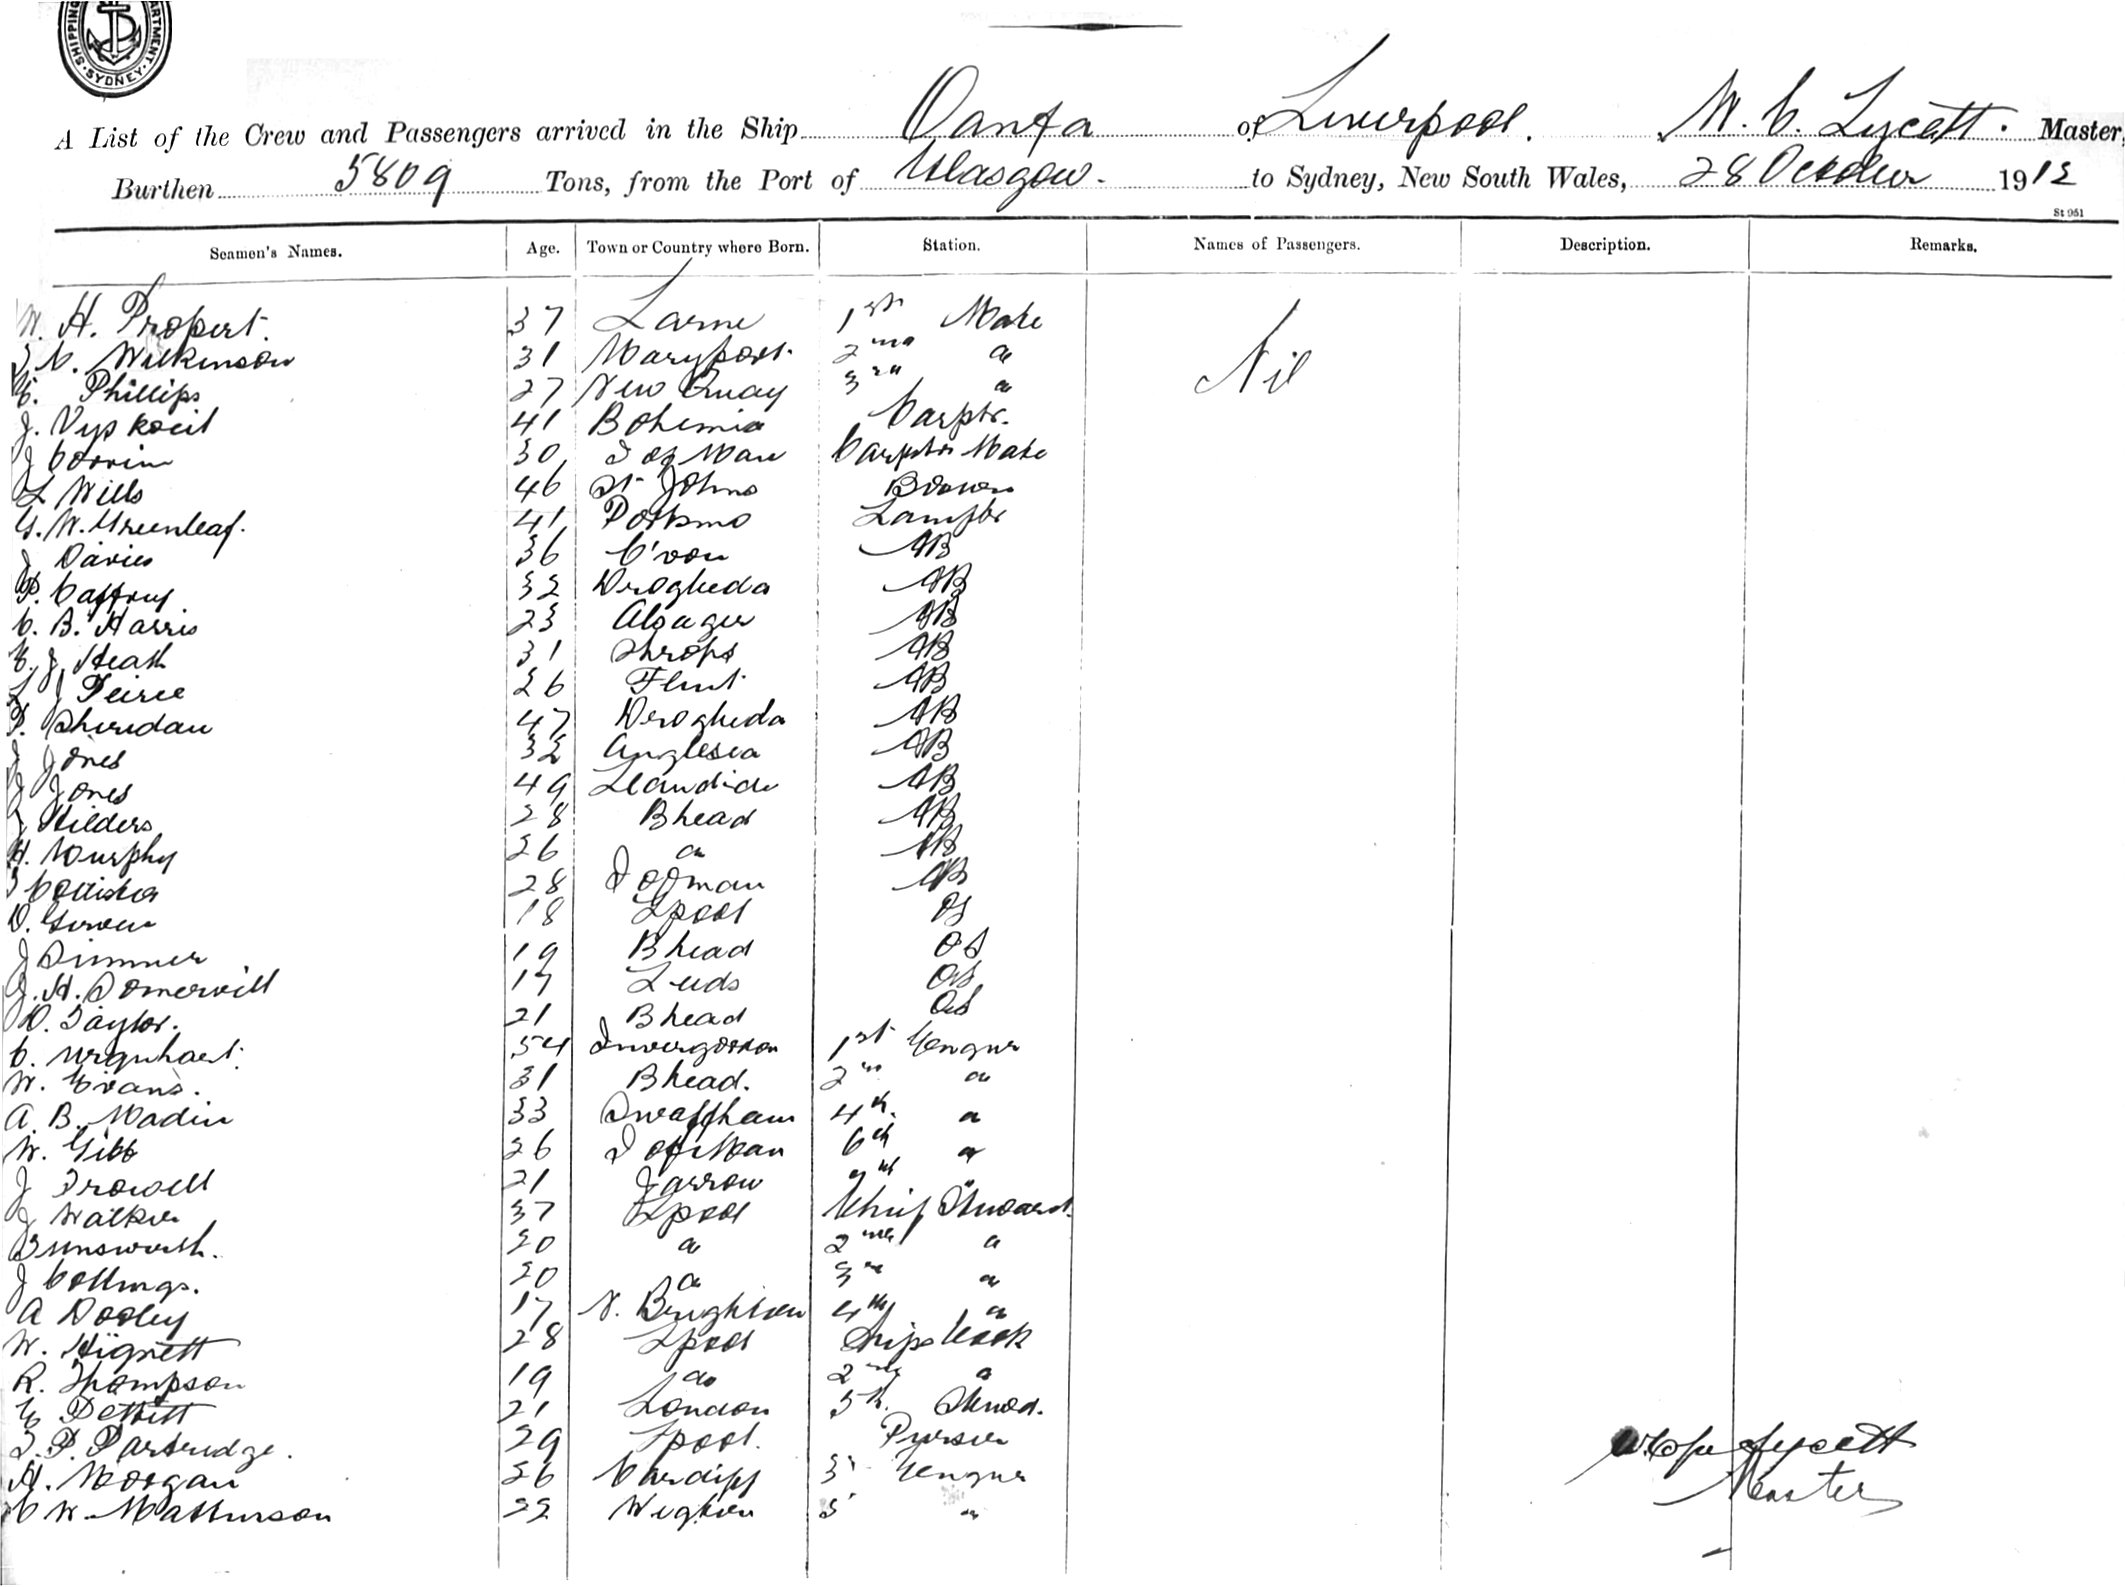 SHIPPING DEPARTMENT. SYDNEY.
A List of the Crew and Passengers arrived in the Ship Oanfa of Liverpool. W. C. Lycett. Master,
Burthen 5809 Tons, from the Port of Glasgow. to Sydney, New South Wales, 28 October 1912
St 951
Seamen's Names. Age. Town or Country where Born. Station. Names of Passengers. Description. Remarks.
W. H. Propert. 37 Larne 1st Mate Nil
Wilkinson 31 Maryport 2nd "
Phillips 27 New Quay 3rd "
J. Vyskocil 41 Bohemia Carptr.
J Corrin 30 I of Man Carptrs Mate
L Wills 46 St Johns Boswn
G. W. Greenleaf. 41 Portsmo Lamptr
J Davies 36 C'von AB
P. Caffrey 32 Drogheda AB
C. B. Harris 23 Alsager AB
E. J. Heath 31 Shrops AB
L J Peirce 26 Flint AB
P. Sheridan 47 Drogheda AB
J Jones 32 Anglesea AB
J Jones 49 AB
J Hilders 28 Bhead AB
H. Murphy 26 " AB
28 I of man AB
D. 18 Lpool OS
J Dimmer 19 Bhead OS
J. H. Somervill 17 Leeds OS
D. Taylor. 21 Bhead OS
C. Urquhart. 54 Invergordon 1st Engnr
W. Evans. 31 Bhead. 2nd "
A. B. Madin 33 Swaffham 4th. "
W. Gibb 26 I of Man 6th "
J Trowell 21 Jarrow "
J Walker 37 Lpool Chief Steward.
Unsworth. 20 " 2nd "
J Collings. 20 " 3rd "
A Dooley 17 N. Brighton 4th "
W. Hignett 28 Lpool Ships Cook
R. Thompson 19 do 2nd "
E Pettitt 21 London 5th. Stewd.
T. P. Partridge. 29 Lpool. Purser
H. Morgan 26 Cardiff 3rd Engnr
C W. Mathewson 22 Wigton 5 "
Lycett
Master